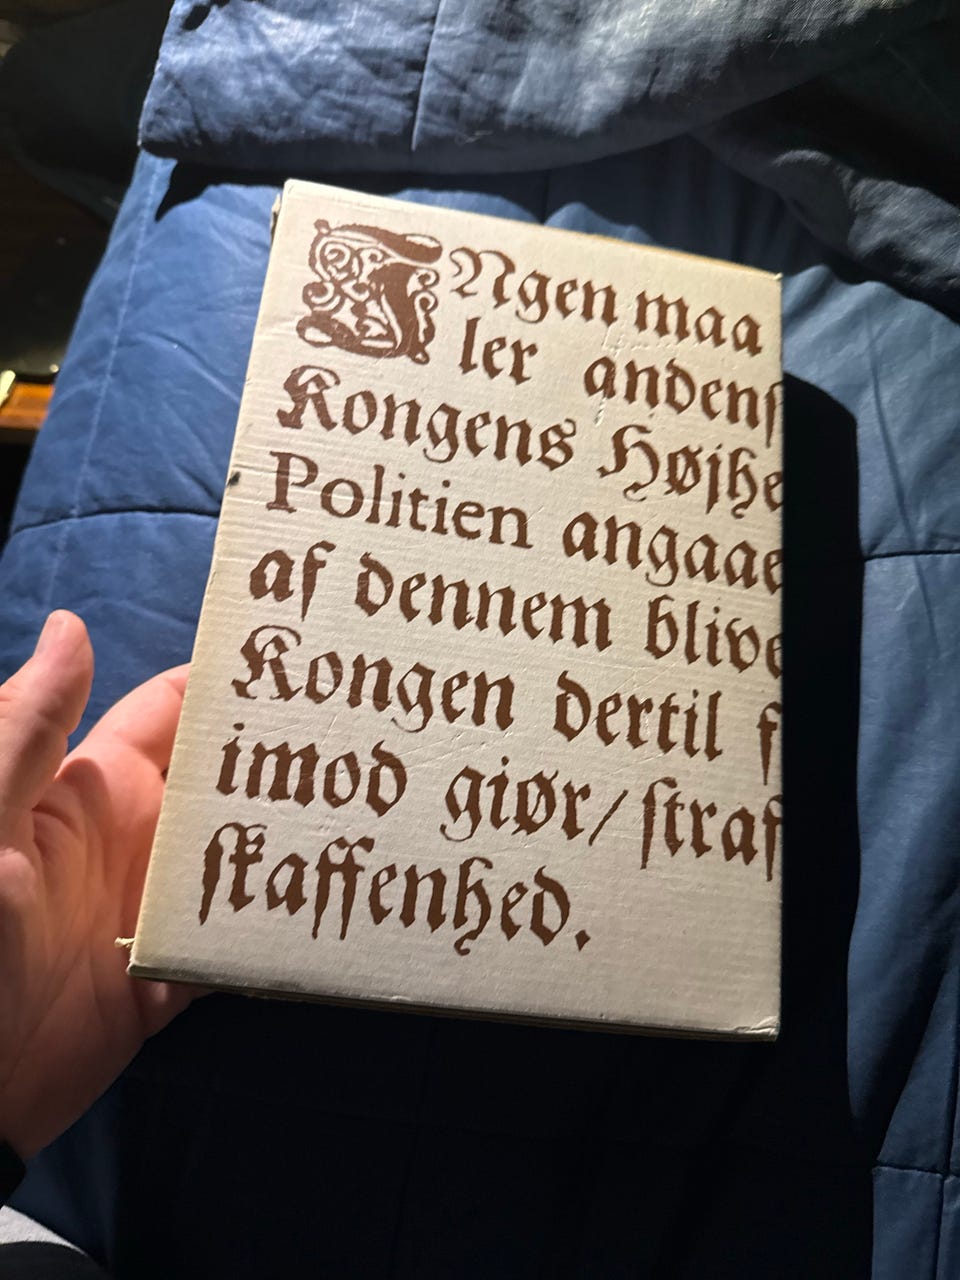 INgen maa
ler andens
Kongens Højhe
Politien angaae
af dennem blive
Kongen dertil f
imod giør/ straf
skaffenhed.